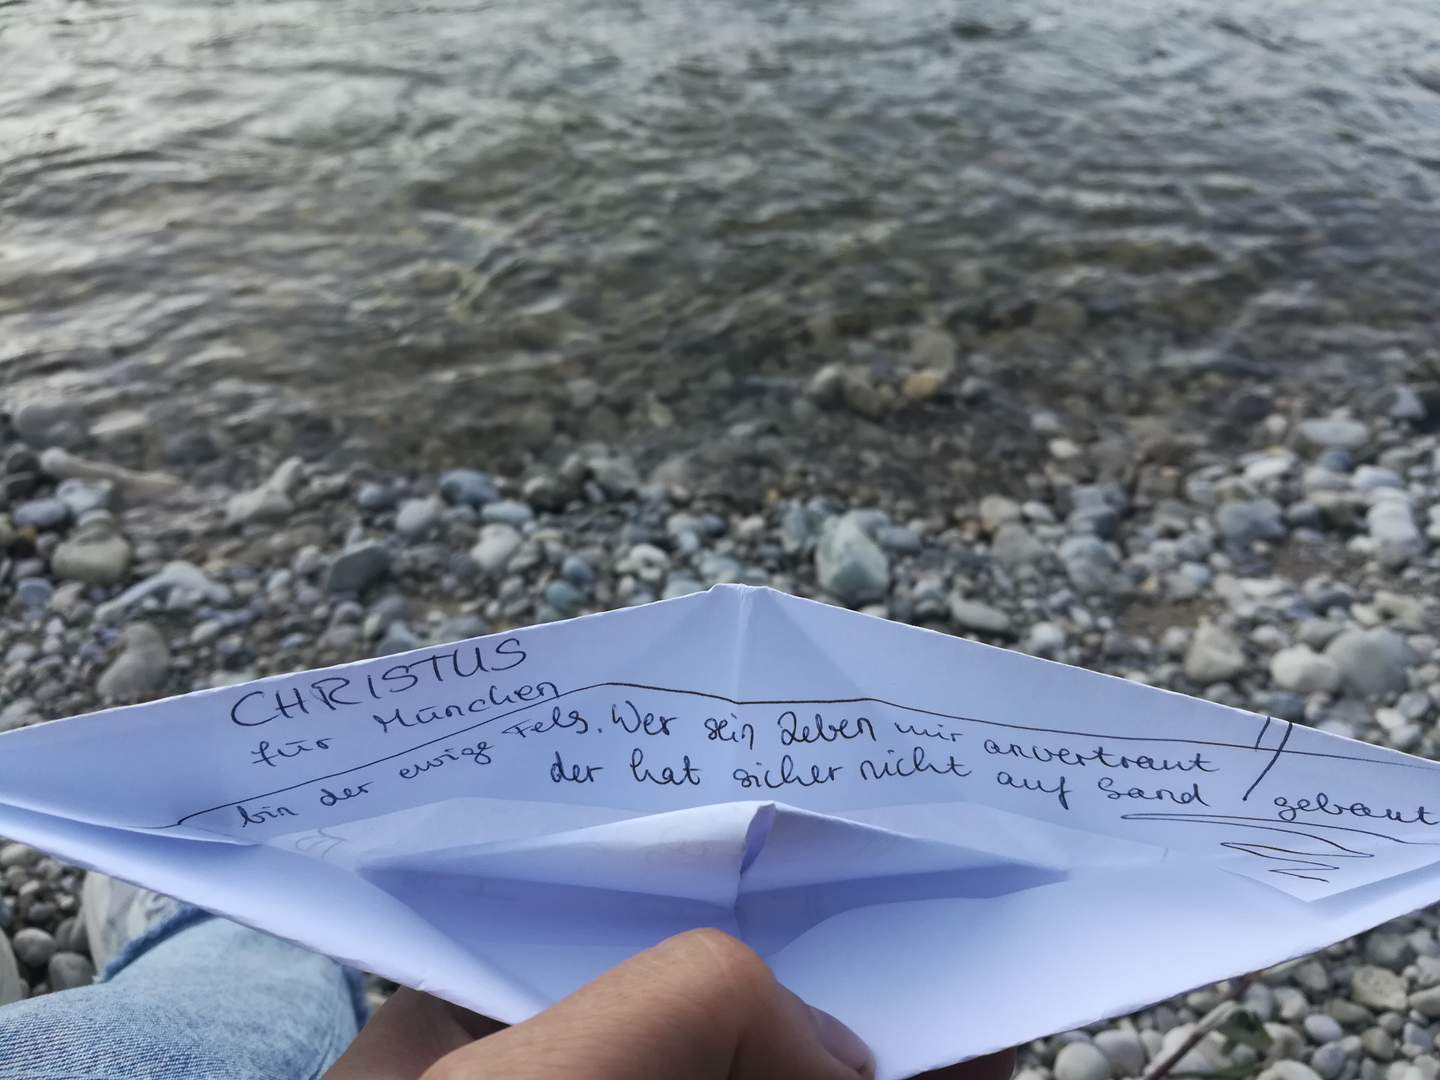 CHRISTUS
für München
bin der ewige Fels. Wer sein Leben mir anvertraut
der hat sicher nicht auf Sand gebaut